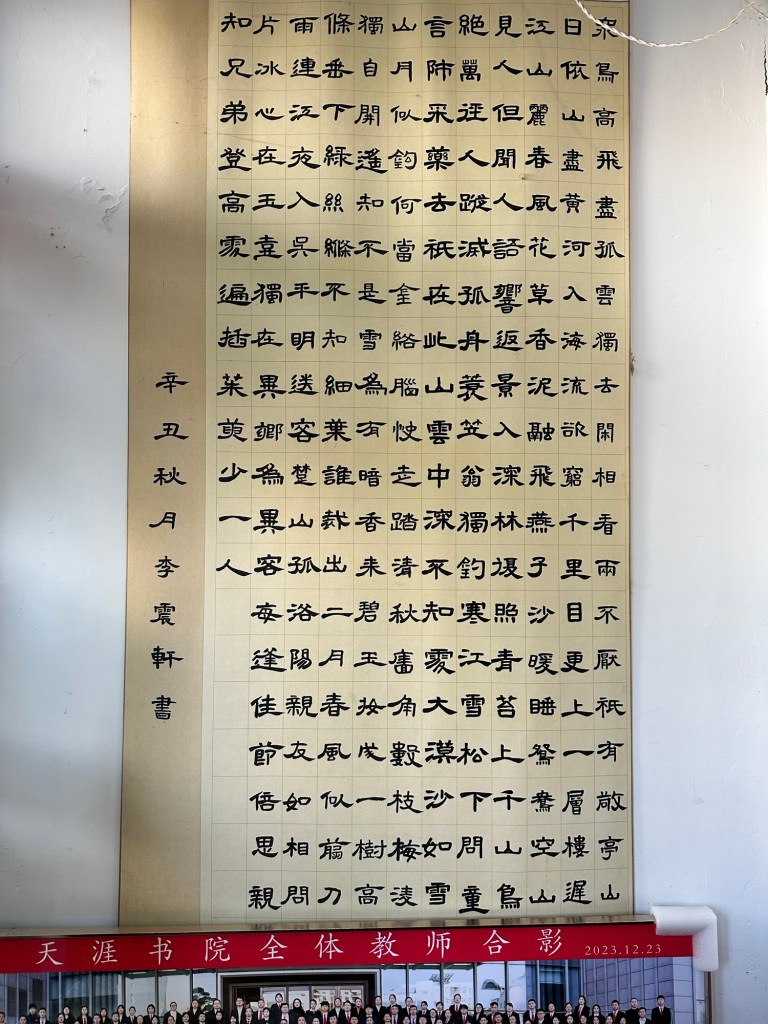 衆鳥高飛盡孤雲獨去閑相看兩不厭祇有敬亭山
日依山盡黃河入海流欲窮千里目更上一層樓遲
江山麗春風花草香泥融飛燕子沙暖睡鴛鴦空山
見人但聞人語響返景入深林復照青苔上千山鳥
絕萬徑人蹤滅孤舟蓑笠翁獨釣寒江雪松下問童
言師采藥去祇在此山雲中深不知處大漠沙如雪
山月似鉤何當金絡腦快走踏清秋牆角數枝梅凌
獨自開遙知不是雪為有暗香來碧玉妝成一樹高
條垂下綠絲絛不知細葉誰裁出二月春風似剪刀
雨連江夜入吳平明送客楚山孤洛陽親友如相問
片冰心在玉壺獨在異鄉為異客每逢佳節倍思親
知兄弟登高處遍插茱萸少一人
辛丑秋月李震軒書
天涯书院全体教师合影 2023.12.23